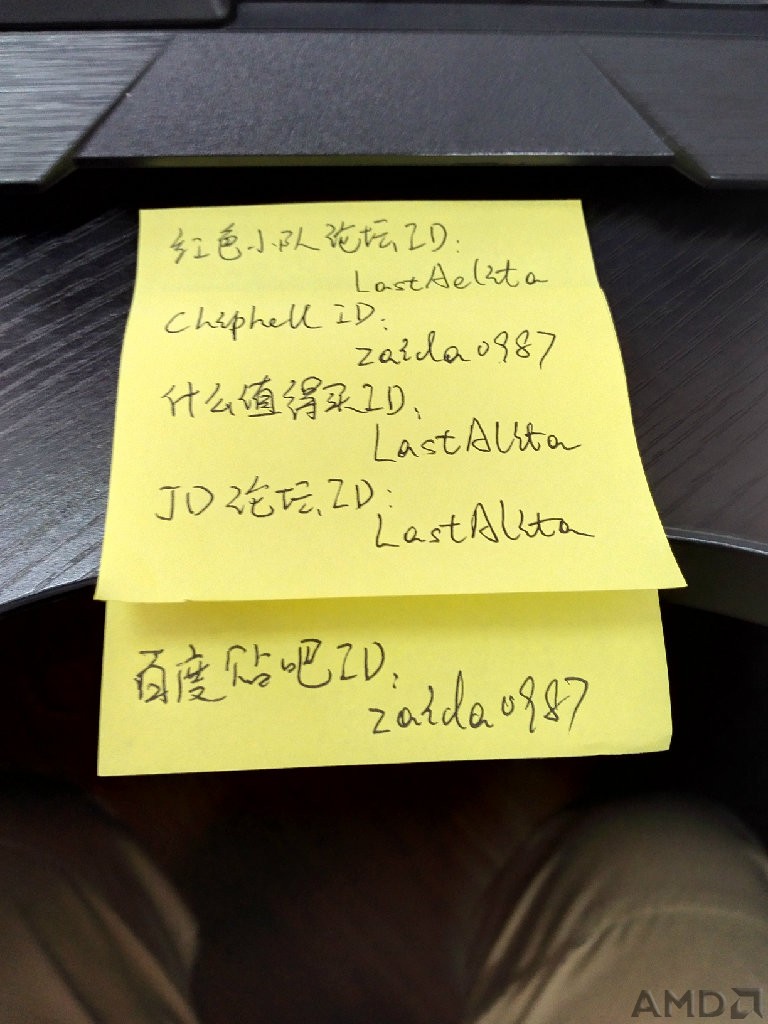 红色小队论坛ID:
LastAekita
Chiphell ID:
zaida0987
什么值得买ID:
LastAkita
JD论坛ID:
LastAkita
百度贴吧ID:
zaida0987
AMD